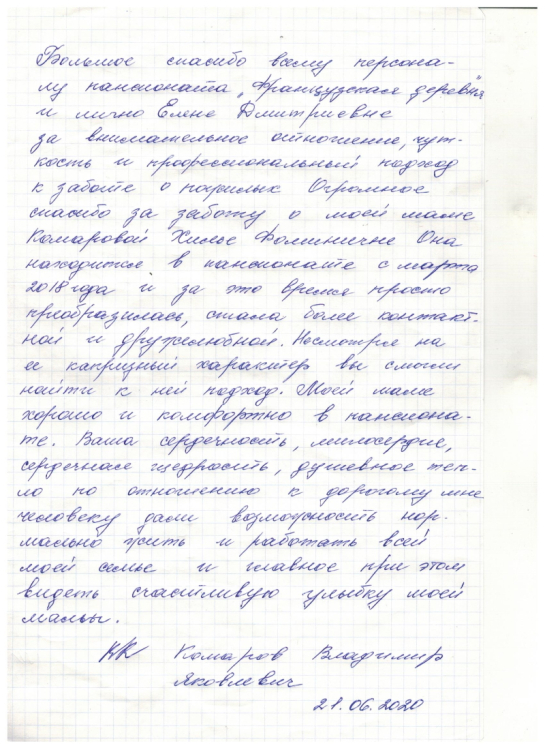 Большое спасибо всему персона-
лу пансионата „Французская деревня"
и лично Елене Дмитриевне
за внимательное отношение, чут-
кость и профессиональный подход
к заботе о пожилых Огромное
спасибо за заботу о моей маме
Комаровой Хилье Фоминичне Она
находится в пансионате с марта
2018 года и за это время просто
преобразилась, стала более контакт-
ной и дружелюбной. Несмотря на
ее капризный характер вы смогли
найти к ней подход. Моей маме
хорошо и комфортно в пансиона-
те. Ваша сердечность, милосердие,
сердечная щедрость, душевное теп-
ло по отношению к дорогому мне
человеку дали возможность нор-
мально жить и работать всей
моей семье и главное при этом
видеть счастливую улыбку моей
мамы.
Комаров Владимир
Яковлевич
21.06.2020